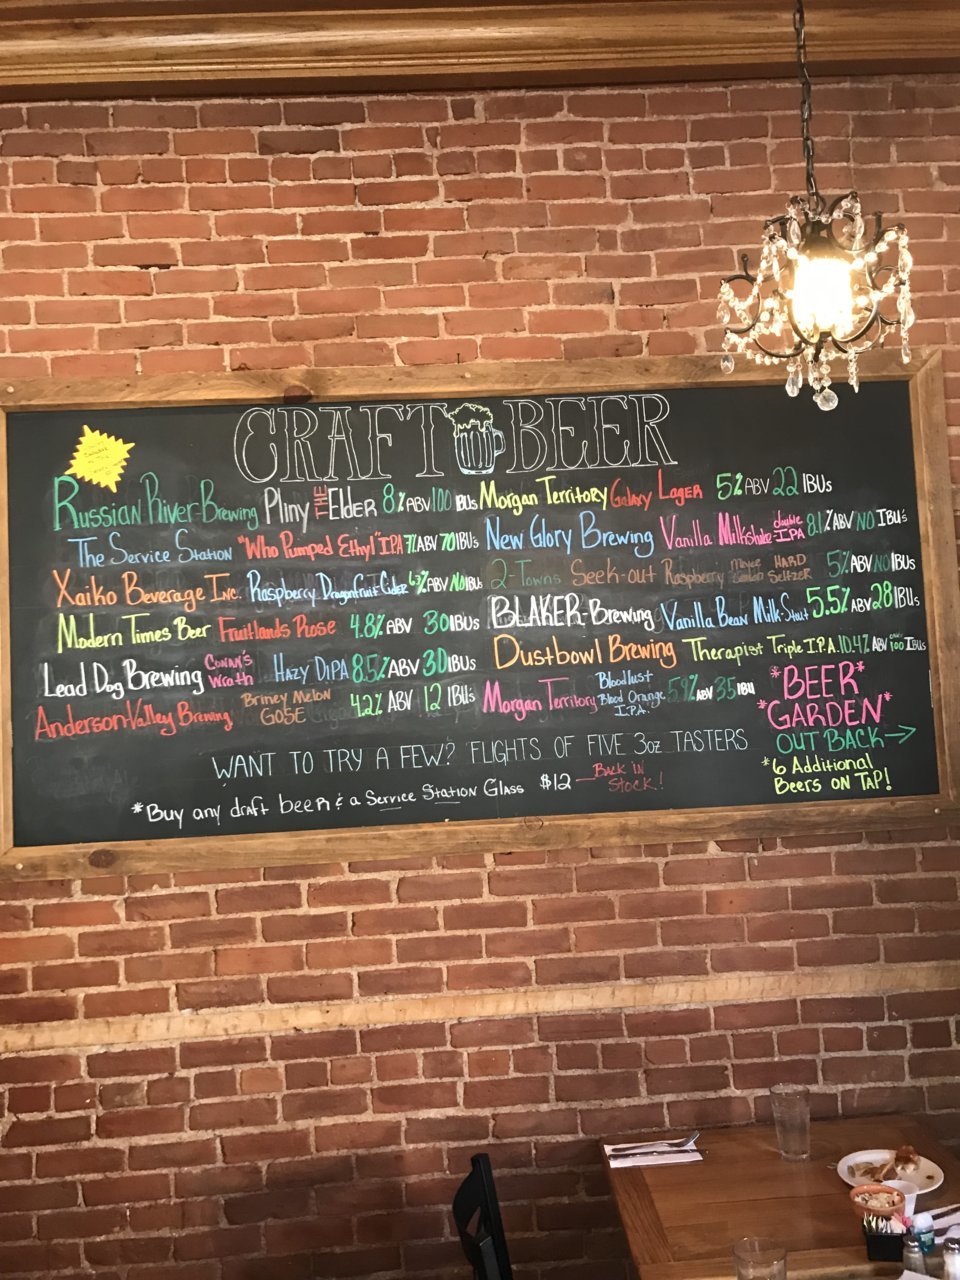 CRAFT BEER
Russian River Brewing Pliny THE Elder 8% ABV 100 IBUs
The Service Station "Who Pumped Ethyl" IPA 7% ABV 70 IBU's
Xaiko Beverage Inc. Raspberry Dragonfruit Cider % ABV No IBUs
Modern Times Beer Fruitlands Rose 4.8% ABV 30 IBUs
Lead Dog Brewing Conan's Wrath Hazy DIPA 8.5% ABV 30 IBUs
Anderson Valley Brewing Briney Melon GOSE 4.2% ABV 12 IBU's
Morgan Territory Galaxy Lager 5% ABV 22 IBUs
New Glory Brewing Vanilla Milkshake double IPA 8.1% ABV NO IBU's
2-Towns Seek-out Raspberry Meyer Lemon HARD Seltzer 5% ABV No IBUs
BLAKER-Brewing Vanilla Bean Milk Stout 5.5% ABV 28 IBUs
Dustbowl Brewing Therapist Triple I.P.A. 10.4% ABV 100 IBUs
Morgan Territory Bloodlust Blood Orange I.P.A. ABV 35 IBU
WANT TO TRY A FEW? FLIGHTS OF FIVE 3oz TASTERS
*Buy any draft beer & a Service Station Glass $12 — Back in Stock!
*BEER*
*GARDEN*
OUT BACK →
*6 Additional
Beers on TAP!